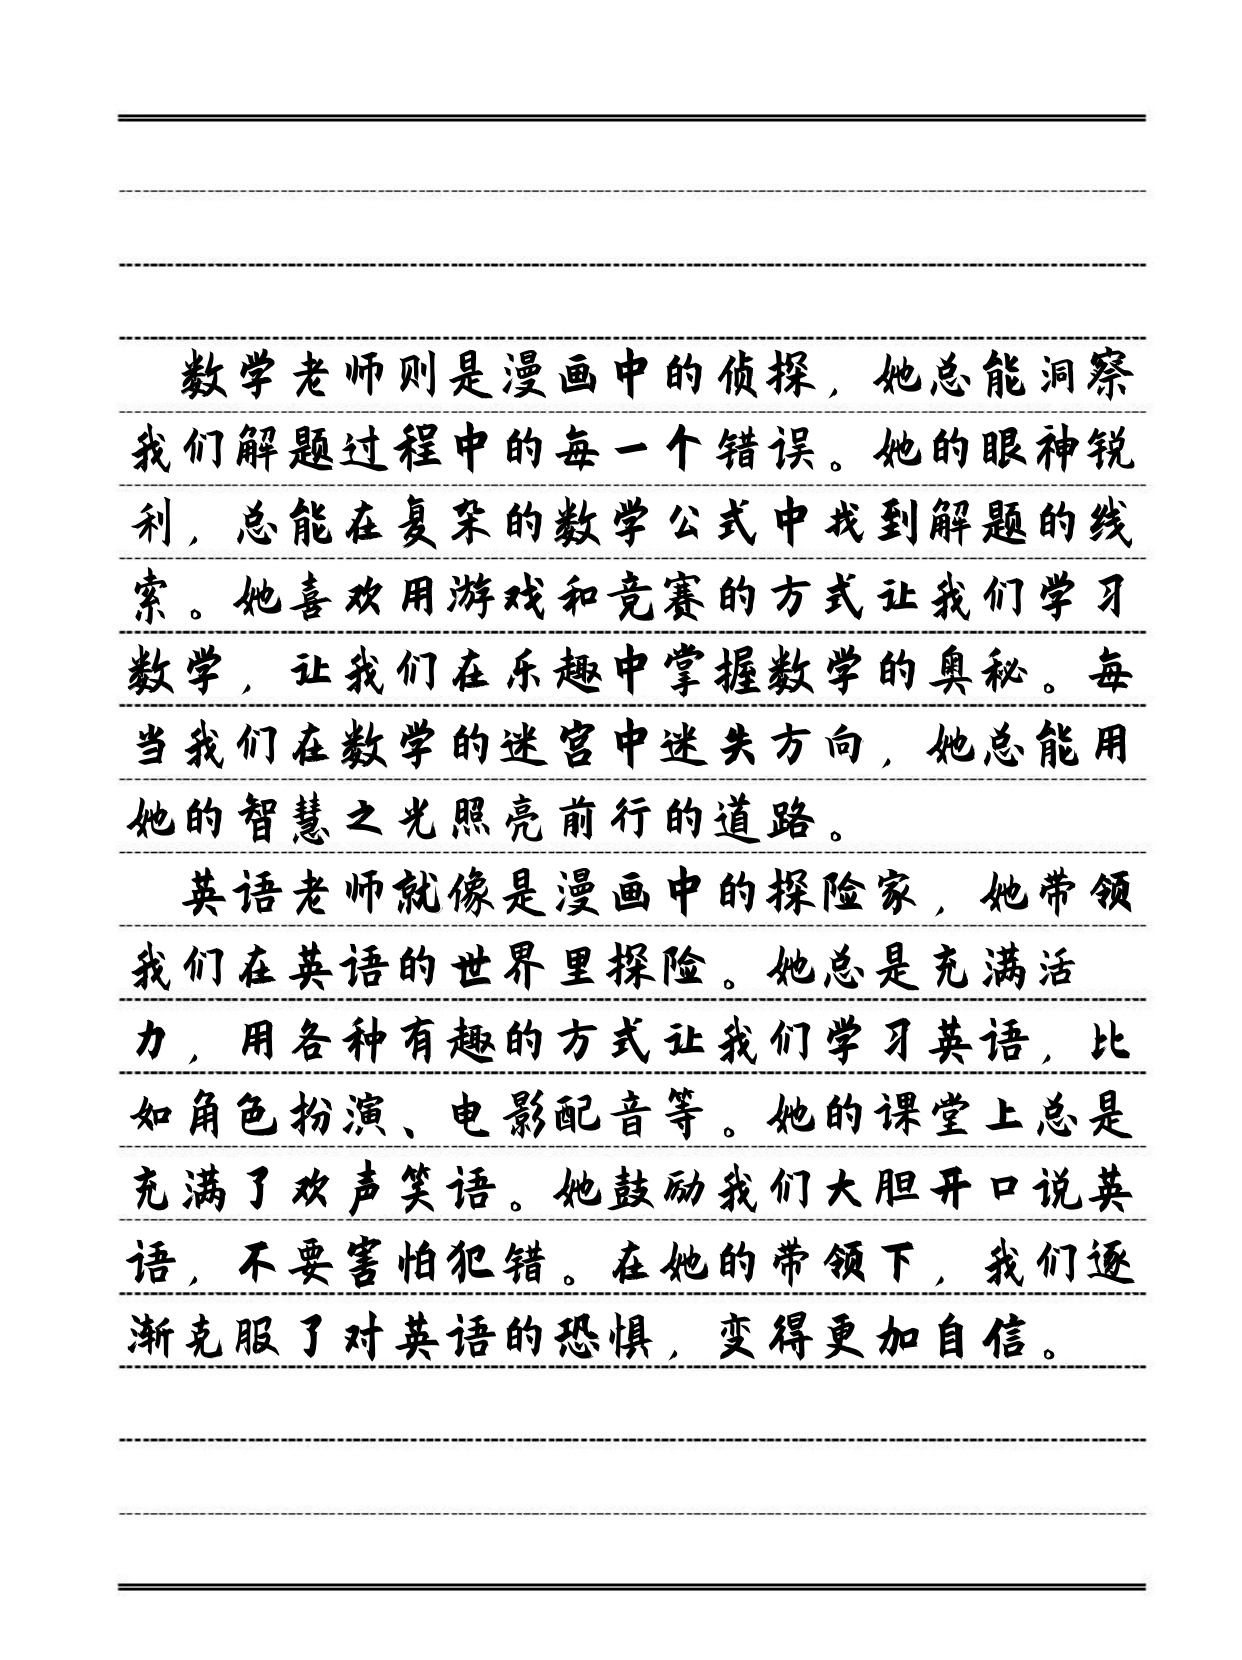 数学老师则是漫画中的侦探，她总能洞察
我们解题过程中的每一个错误。她的眼神锐
利，总能在复杂的数学公式中找到解题的线
索。她喜欢用游戏和竞赛的方式让我们学习
数学，让我们在乐趣中掌握数学的奥秘。每
当我们在数学的迷宫中迷失方向，她总能用
她的智慧之光照亮前行的道路。
英语老师就像是漫画中的探险家，她带领
我们在英语的世界里探险。她总是充满活
力，用各种有趣的方式让我们学习英语，比
如角色扮演、电影配音等。她的课堂上总是
充满了欢声笑语。她鼓励我们大胆开口说英
语，不要害怕犯错。在她的带领下，我们逐
渐克服了对英语的恐惧，变得更加自信。